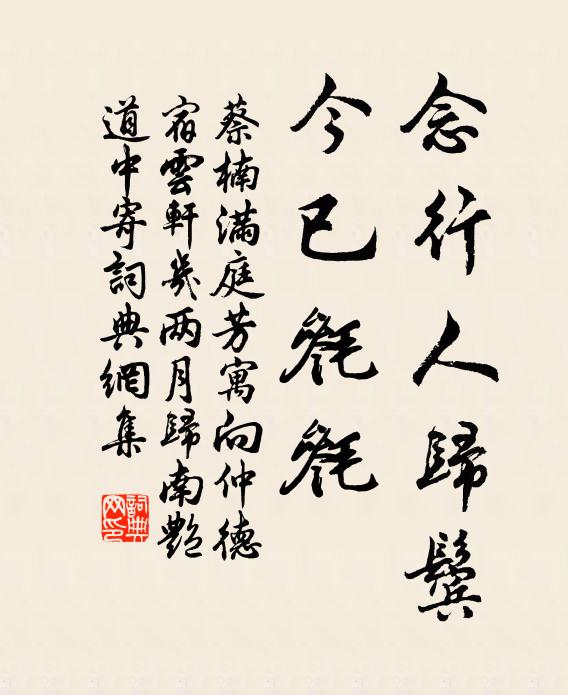 念行人歸鬢
今已毿毿
蔡楠滿庭芳寓向仲德
宿雲軒幾两月歸南艷
道中寄詞典網集
詞典
网印